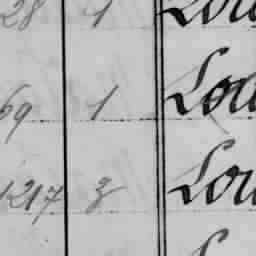 28 1 Lou
69 1 Lou
1217 3 Lou